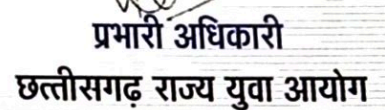 प्रभारी अधिकारी
छत्तीसगढ़ राज्य युवा आयोग